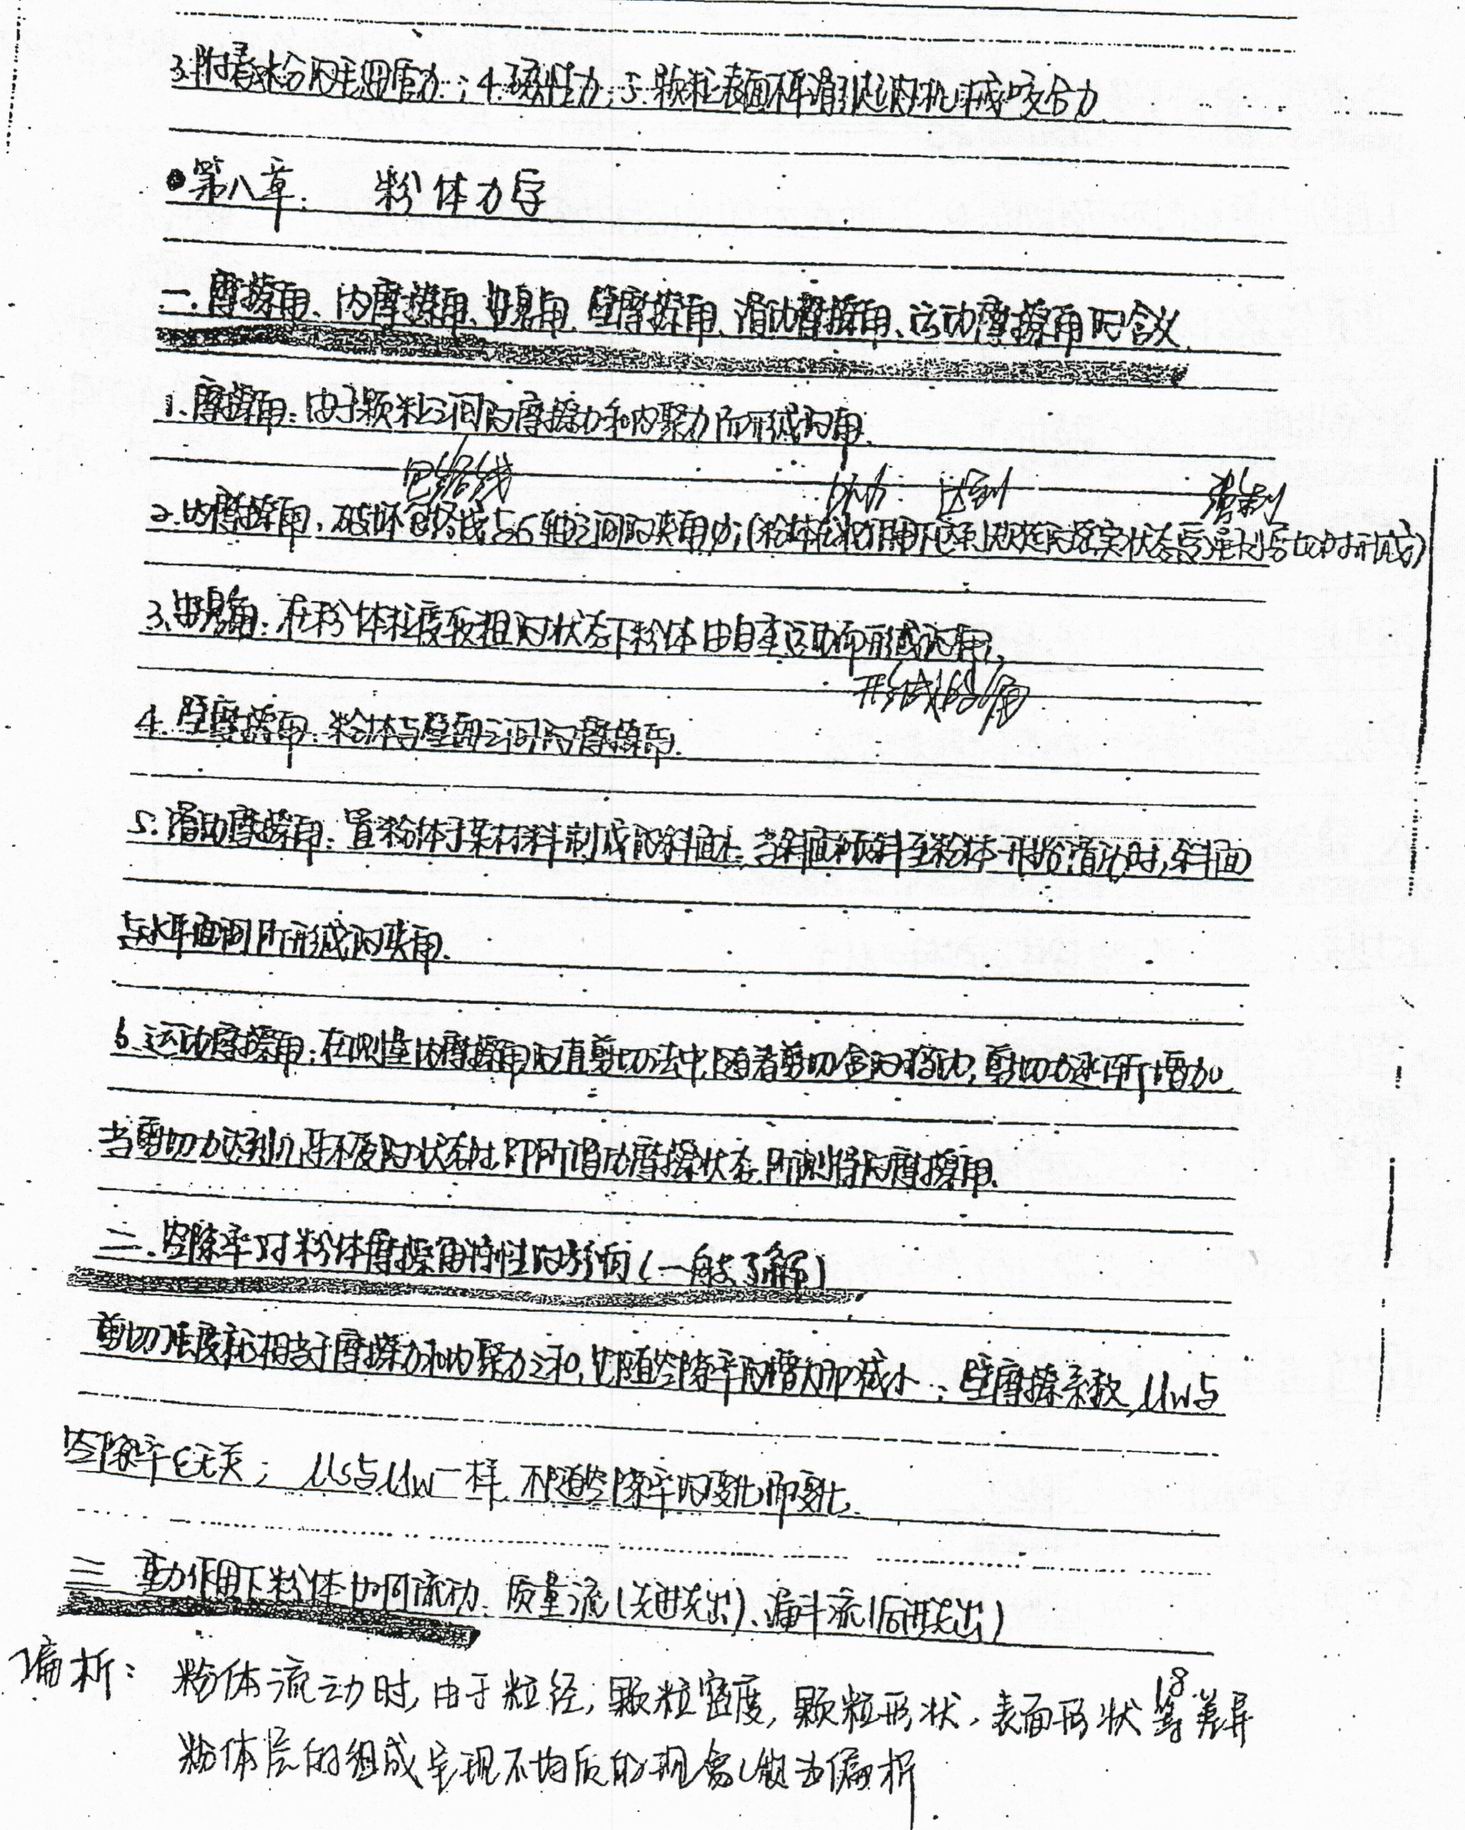 3.附着水分的毛细管力；4.磁性力；5.颗粒表面不平滑引起的机械咬合力
第八章：粉体力学
一.摩擦角、内摩擦角、安息角、壁摩擦角、滑动摩擦角、运动摩擦角的含义
1.摩擦角：由于颗粒之间的摩擦力和内聚力而形成的角.
包络线 达到 强制
2.内摩擦角：破坏包络线与σ轴之间的夹角
3.安息角：在粉体粒度较粗的状态下粉体由自重运动而形成的角.
形成的角
4.壁摩擦角：粉体与壁面之间的摩擦角.
5.滑动摩擦角：置粉体于某材料制成的斜面上，当斜面倾斜至粉体开始滑动时，斜面
与水平面间所形成的夹角.
6.运动摩擦角：在测量内摩擦角的直剪切法中，随着剪切盒的移动，剪切力逐渐增加
当剪切力达到几乎不变时的状态时，即所谓动摩擦状态，所测得的摩擦角.
二.空隙率对粉体摩擦角特性的影响(一般了解)
剪切强度就相当于摩擦力和内聚力之和，它随空隙率的增大而减小；壁摩擦系数，μw与
空隙率ε无关；μs与μw一样，不随空隙率的变化而变化.
三 重力作用下粉体如何流动：质量流(先进先出)、漏斗流(后进先出)
18.
偏析：粉体流动时，由于粒径，颗粒密度，颗粒形状，表面形状等差异
粉体层的组成呈现不均质的现象 称为偏析.